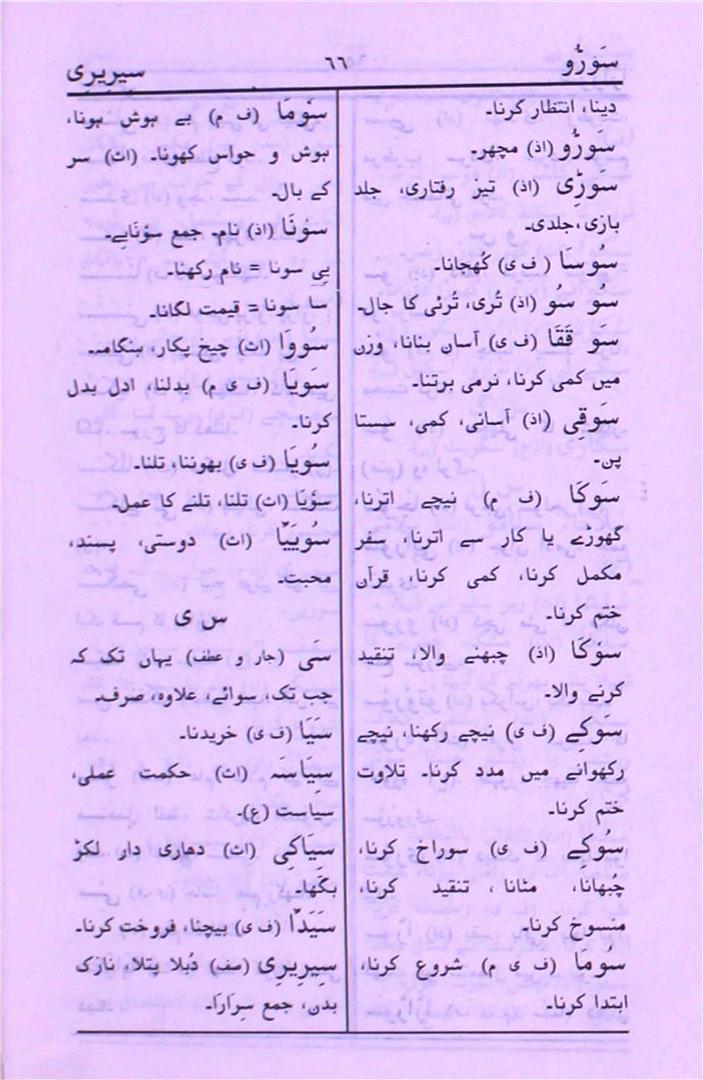 سَورُّو ٦٦ سیریری
دینا، انتظار کرنا۔
سَورُّو (اذ) مچھر۔
سَورِّی (اذ) تیز رفتاری، جلد
بازی، جلدی۔
سُوسَا (ف ی) کُھجانا۔
سُو سُو (اذ) تُری، تُرئی کا جال۔
سَو قَقَا (ف ی) آسان بنانا، وزن
میں کمی کرنا، نرمی برتنا۔
سَوقِی (اذ) آسانی، کمی، سستا
پن۔
سَوکَا (ف م) نیچے اترنا،
گھوڑے یا کار سے اترنا، سفر
مکمل کرنا، کمی کرنا، قرآن
ختم کرنا۔
سَوُکَا (اذ) چبھنے والا، تنقید
کرنے والا۔
سَوکے (ف ی) نیچے رکھنا، نیچے
رکھوانے میں مدد کرنا۔ تلاوت
ختم کرنا۔
سُوکے (ف ی) سوراخ کرنا،
چُبھانا، مٹانا، تنقید کرنا،
منسوخ کرنا۔
سُومَا (ف ی م) شروع کرنا،
ابتدا کرنا۔
سُومَا (ف م) بے ہوش ہونا،
ہوش و حواس کھونا۔ (اث) سر
کے بال۔
سُونَا (اذ) نام۔ جمع سؤنَابے۔
یِی سونا = نام رکھنا۔
سا سونا = قیمت لگانا۔
سُووَا (اث) چیخ پکار، ہنگامہ۔
سَویَا (ف ی م) بدلنا، ادل بدل
کرنا۔
سُویَا (ف ی) بھوننا، تلنا۔
سؤیَا (اث) تلنا، تلنے کا عمل۔
سُوییَّا (اث) دوستی، پسند،
محبت۔
س ی
سَی (جار و عطف) یہاں تک کہ
جب تک، سوائے، علاوہ، صرف۔
سَیَا (ف ی) خریدنا۔
سِیاسَہ (اث) حکمت عملی،
سیاست (ع)۔
سیَاکی (اث) دھاری دار لکڑ
بگھا۔
سَیَدَّا (ف ی) بیچنا، فروخت کرنا۔
سِیرِیرِی (صف) دُبلا پتلا، نازک
بدن، جمع سِرَارَا۔